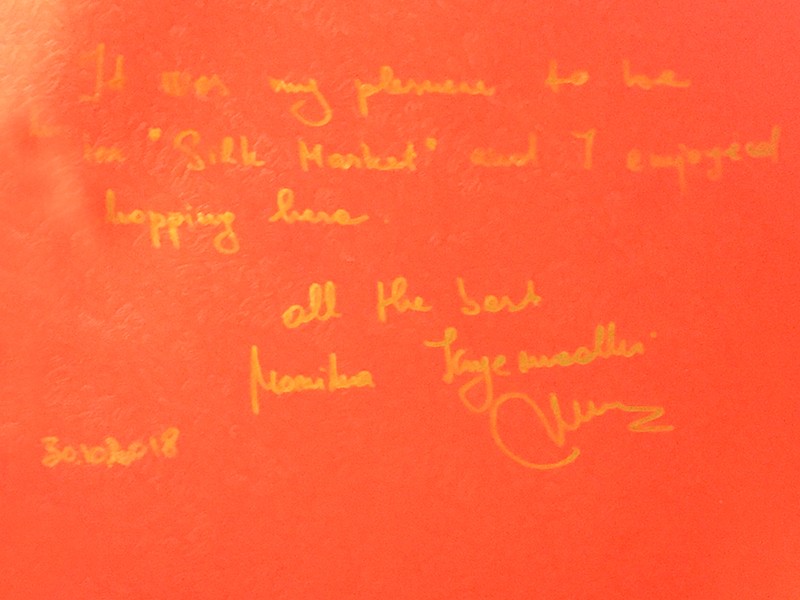 It was my pleasure to be
in "Silk Market" and I enjoyed
hopping here.
all the best
Monika
30.10.2018